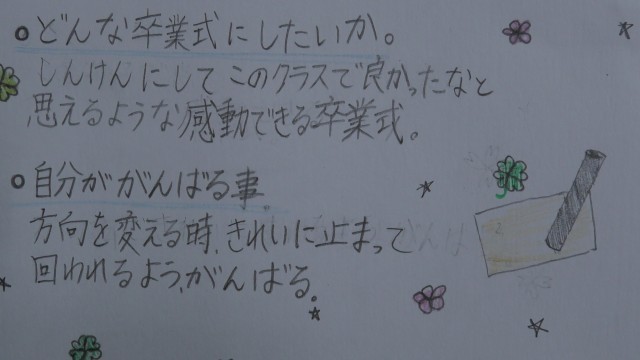 ○どんな卒業式にしたいか。
しんけんにしてこのクラスで良かったなと
思えるような感動できる卒業式。
○自分ががんばる事。
方向を変える時、きれいに止まって
回われるよう、がんばる。